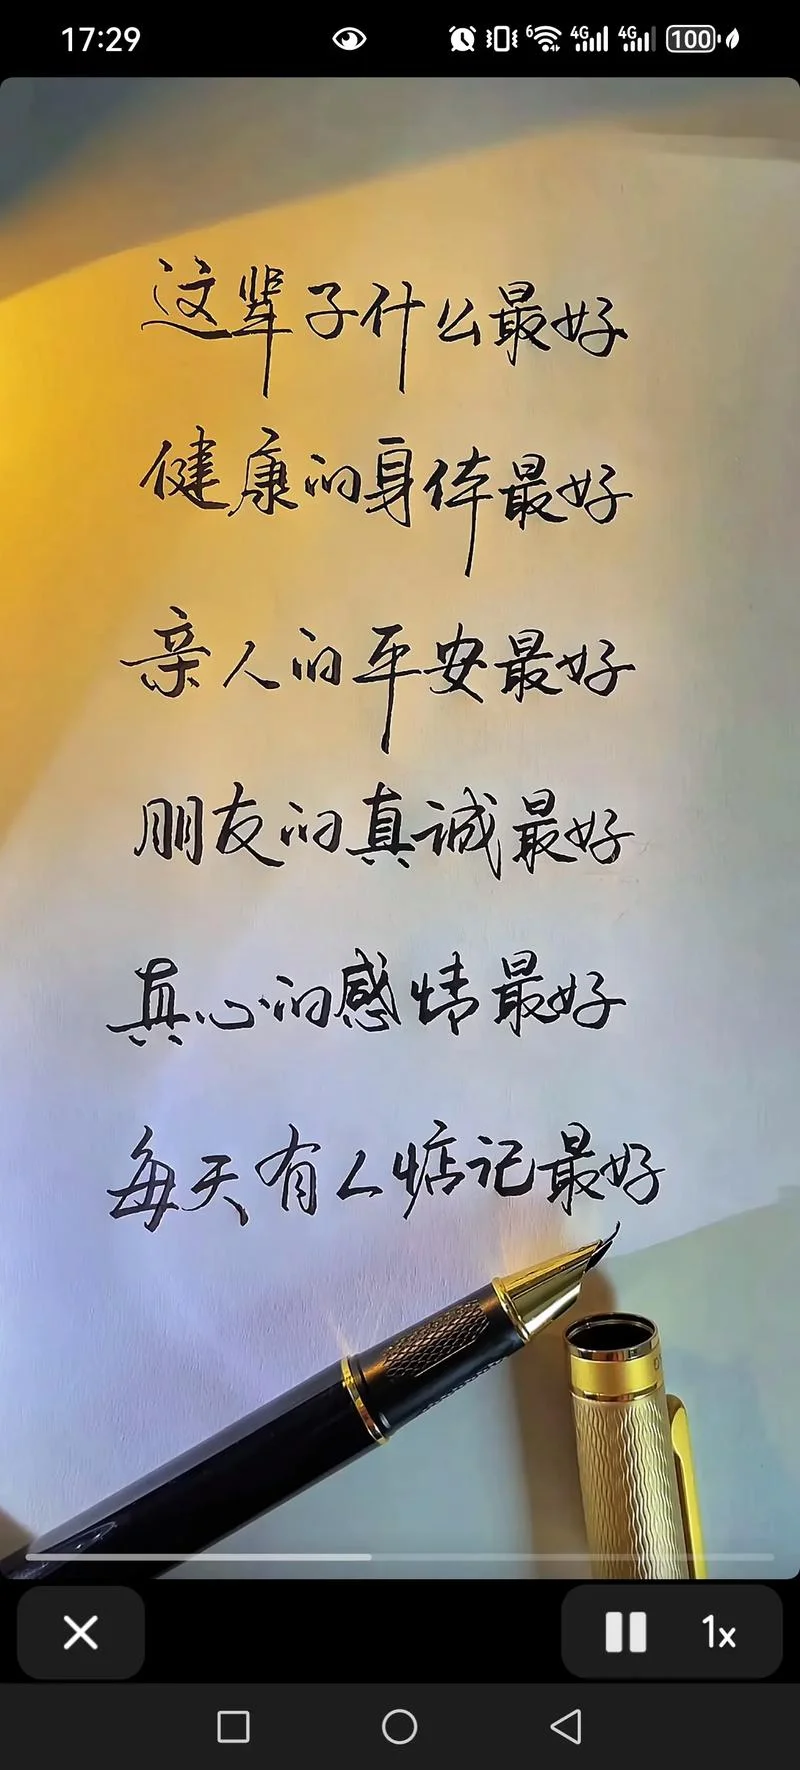 17:29
6 4G 4G 100
这辈子什么最好
健康的身体最好
亲人的平安最好
朋友的真诚最好
真心的感情最好
每天有人惦记最好
1x